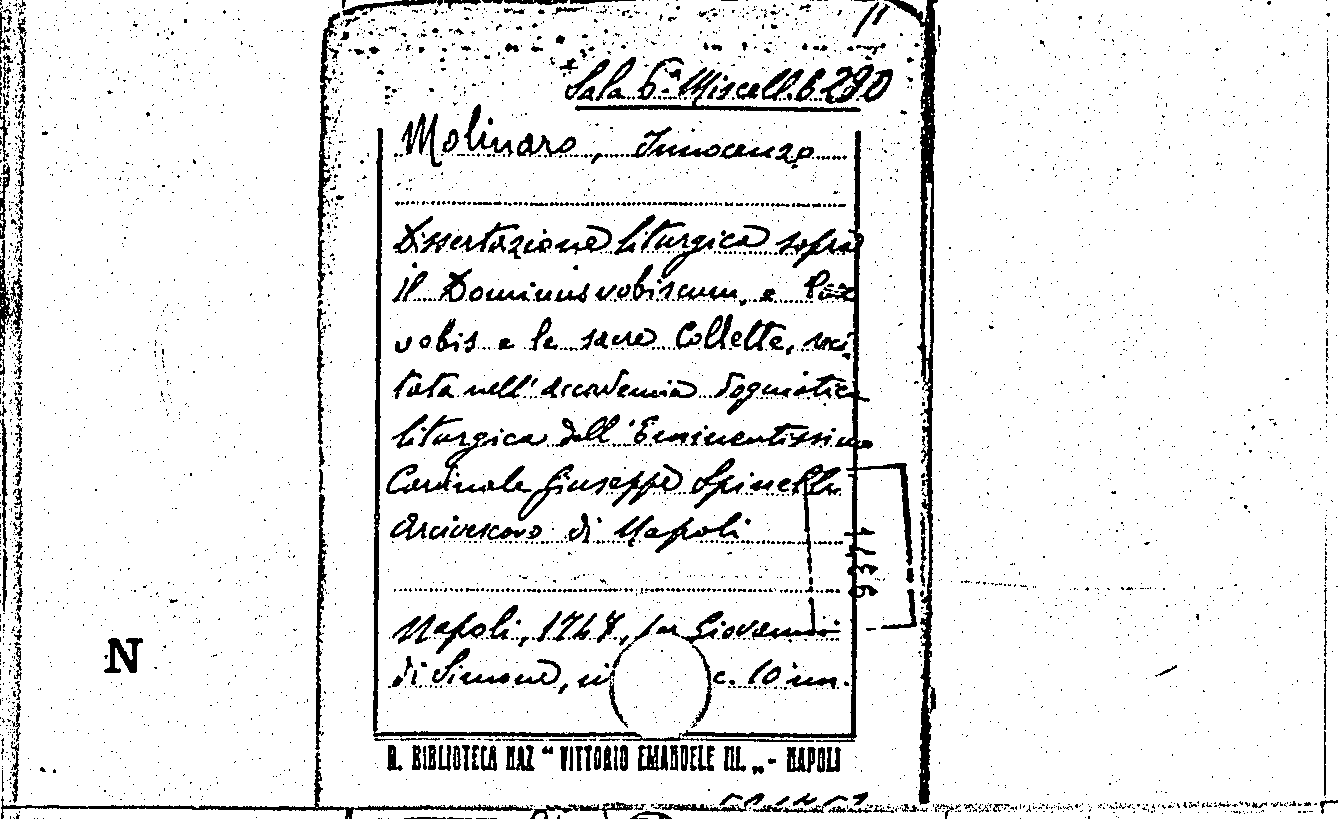 Sala 6ª Miscell. B 230
Molinaro, Innocenzo
Dissertazione liturgica sopra
il Dominus vobiscum, e Pax
vobis e le sacre Collette, reci-
tata nell'accademia dogmatica
liturgica dell'Eminentissimo
Cardinale Giuseppe Spinelli
Arcivescovo di Napoli
Napoli, 1747, per Giovanni
di Simone, in c. 10 nn.
R. BIBLIOTECA NAZ "VITTORIO EMANUELE III. „ - NAPOLI
N